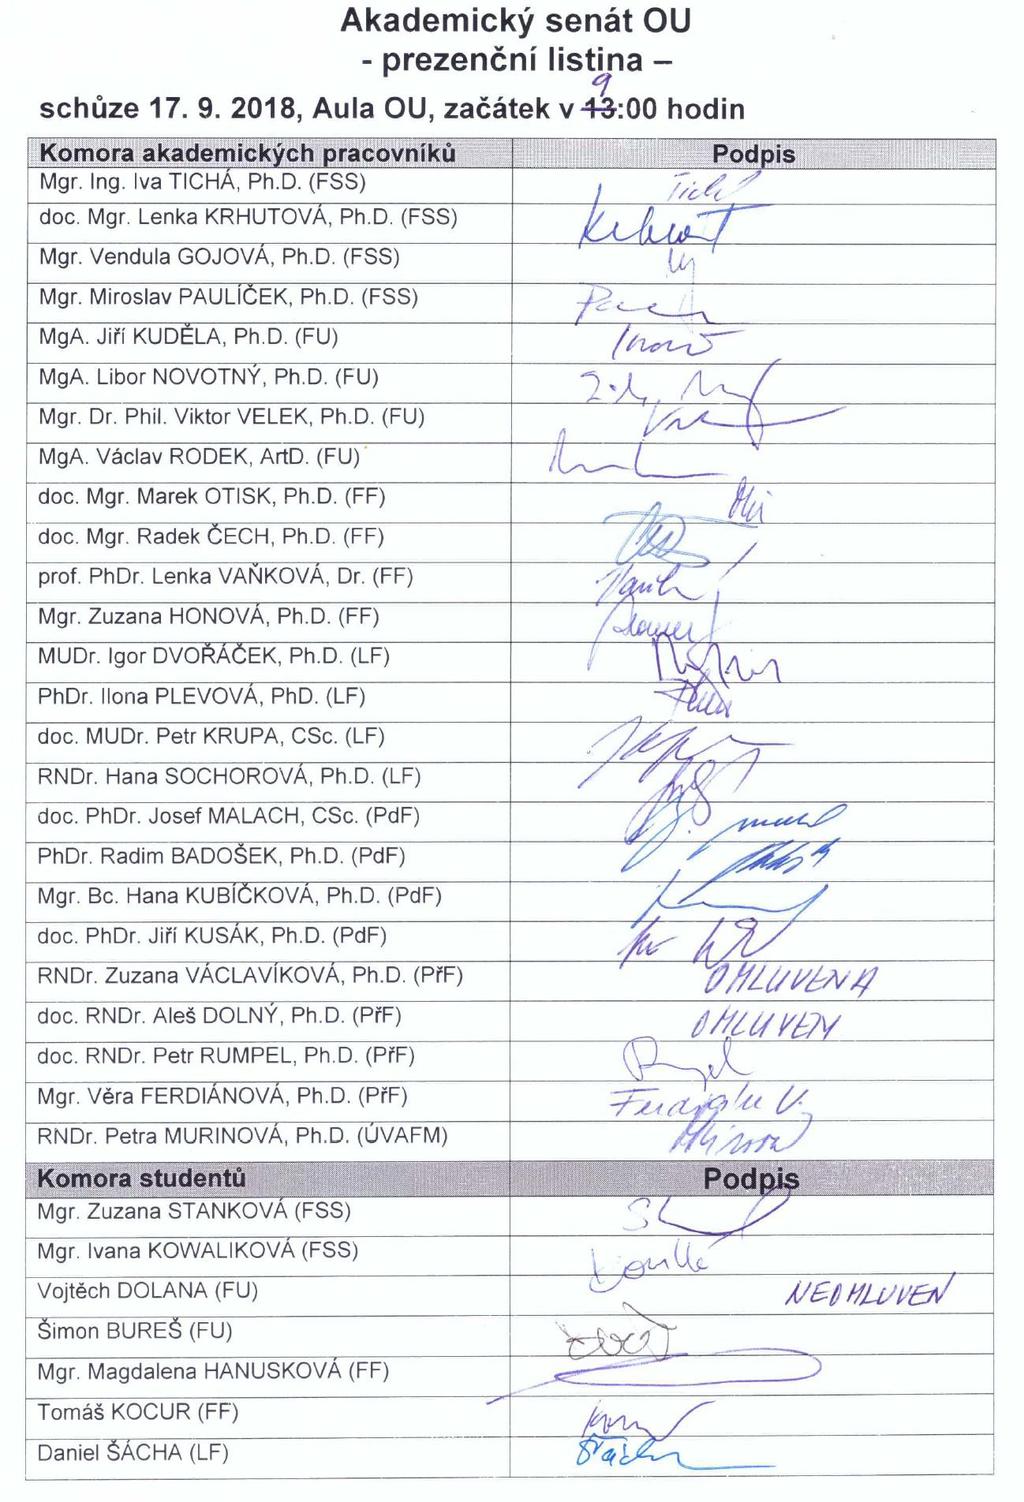 Akademický senát OU
- prezenční listina –
9
schůze 17. 9. 2018, Aula OU, začátek v 13:00 hodin
Komora akademických pracovníků Podpis
Mgr. Ing. Iva TICHÁ, Ph.D. (FSS)
doc. Mgr. Lenka KRHUTOVÁ, Ph.D. (FSS)
Mgr. Vendula GOJOVÁ, Ph.D. (FSS)
Mgr. Miroslav PAULÍČEK, Ph.D. (FSS)
MgA. Jiří KUDĚLA, Ph.D. (FU)
MgA. Libor NOVOTNÝ, Ph.D. (FU)
Mgr. Dr. Phil. Viktor VELEK, Ph.D. (FU)
MgA. Václav RODEK, ArtD. (FU)
doc. Mgr. Marek OTISK, Ph.D. (FF)
doc. Mgr. Radek ČECH, Ph.D. (FF)
prof. PhDr. Lenka VAŇKOVÁ, Dr. (FF)
Mgr. Zuzana HONOVÁ, Ph.D. (FF)
MUDr. Igor DVOŘÁČEK, Ph.D. (LF)
PhDr. Ilona PLEVOVÁ, PhD. (LF)
doc. MUDr. Petr KRUPA, CSc. (LF)
RNDr. Hana SOCHOROVÁ, Ph.D. (LF)
doc. PhDr. Josef MALACH, CSc. (PdF)
PhDr. Radim BADOŠEK, Ph.D. (PdF)
Mgr. Bc. Hana KUBÍČKOVÁ, Ph.D. (PdF)
doc. PhDr. Jiří KUSÁK, Ph.D. (PdF)
RNDr. Zuzana VÁCLAVÍKOVÁ, Ph.D. (PřF) OMLUVENA
doc. RNDr. Aleš DOLNÝ, Ph.D. (PřF) OMLUVEN
doc. RNDr. Petr RUMPEL, Ph.D. (PřF)
Mgr. Věra FERDIÁNOVÁ, Ph.D. (PřF)
RNDr. Petra MURINOVÁ, Ph.D. (ÚVAFM)
Komora studentů Podpis
Mgr. Zuzana STANKOVÁ (FSS)
Mgr. Ivana KOWALIKOVÁ (FSS)
Vojtěch DOLANA (FU) NEOMLUVEN
Šimon BUREŠ (FU)
Mgr. Magdalena HANUSKOVÁ (FF)
Tomáš KOCUR (FF)
Daniel ŠÁCHA (LF)